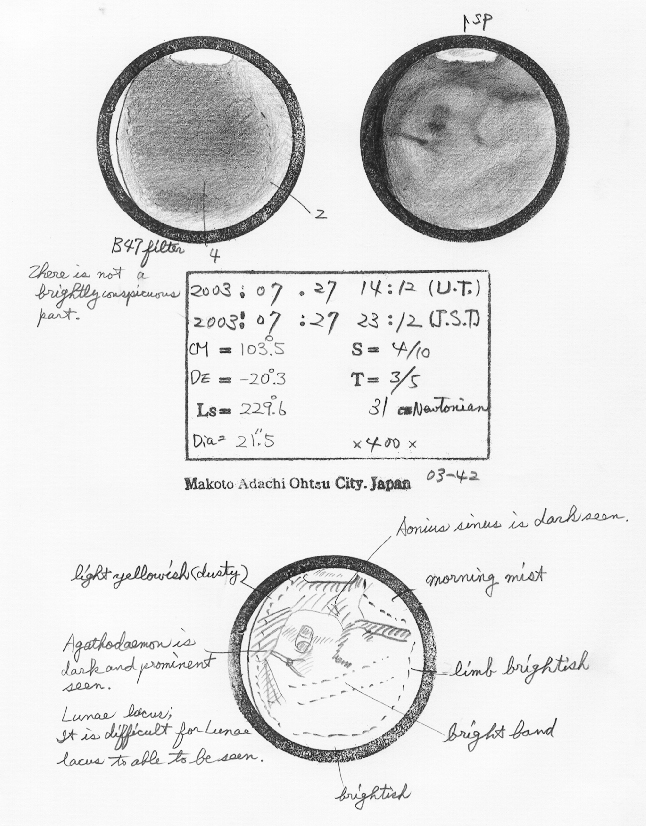 SP
2
B47 filter
4
There is not a
brightly conspicuous
part.
2003 : 07 . 27 14:12 (U.T.)
2003: 07 :27 23:12 (J.S.T)
CM = 103.°5 S = 4/10
DE = -20.°3 T = 3/5
Ls= 229.°6 31 cm Newtonian
Dia= 21."5 ×400×
Makoto Adachi Ohtsu City. Japan 03-42
Aonius sinus is dark seen.
light yellowish (dusty)
morning mist
Agathodaemon is
dark and prominent
seen.
limb brightish
Lunae lacus;
It is difficult for Lunae
lacus to able to be seen.
bright band
brightish